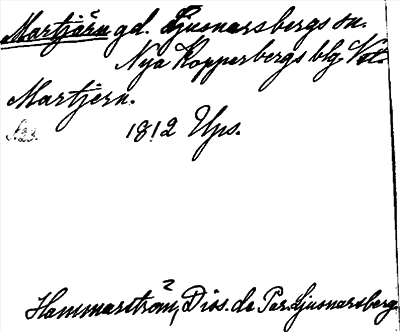 Martjärn gd. Ljusnarsbergs sn.
Nya Kopparbergs blg. Vstm.
Martjern.
1812 Ups.
Hammarström, Diss. de Par. Ljusnarsberg